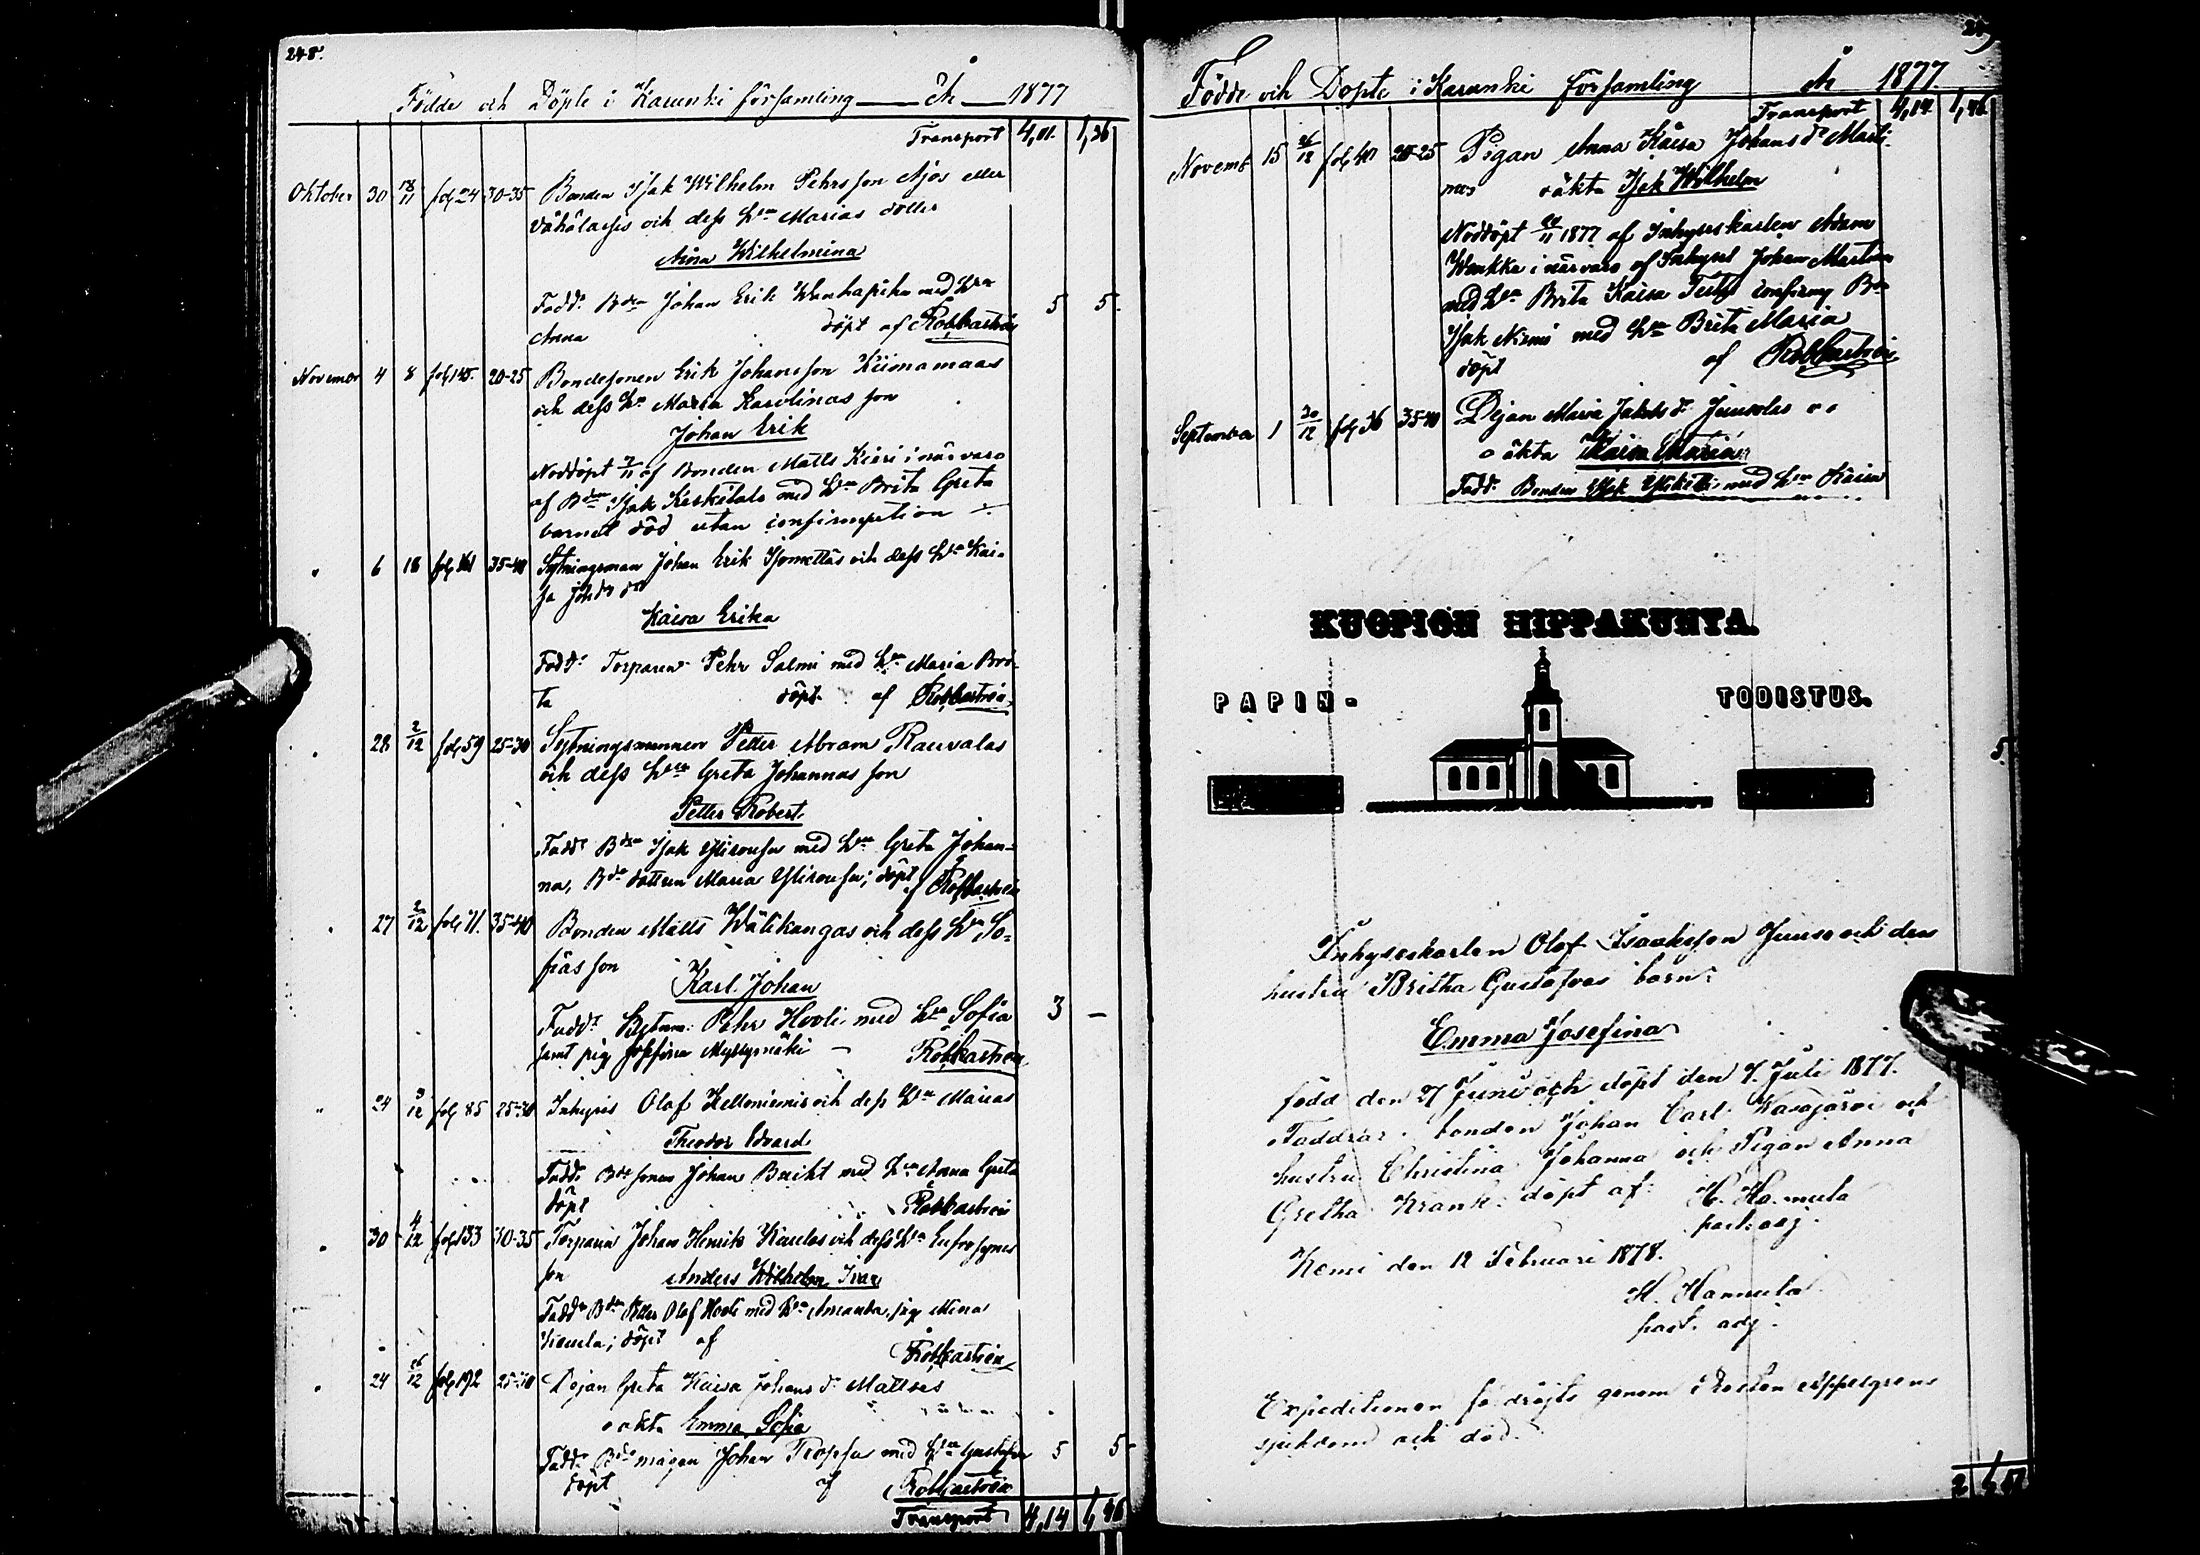 248.
Födde och Döpte i Karunki församling År 1877
Transport 4,01. 1,36
Oktober 30 18/11 fol 24 30-35 Bonden Isak Wilhelm Pehrsson Ajos eller
och dess Hu Marias dotter
Anna Wilhelmina
Fadd: Bden Johan Erik med Hu
Anna döpt af Robb Castrén 5 5
November 4 8 fol 145. 20-25 Bondesonen Erik Johansson Kiimamaas
och dess Hu Maria Karolinas son
Johan Erik
Noddöpt 7/11 af Bonden Matts Kieri i närvaro
af Bden Isak Keskitalo med Hu Brita Greta
barnet död utan confirmation
" 6 18 fol 161 35-40 Sytningsman Johan Erik Isometsäs och dess Hu Kai-
sa Johds dr
Kaisa Erika
Fadd: Torparen Pehr Salmi med Hu Maria Bri-
ta döpt af Rob Castrén
" 28 2/12 fol 59 25-30 Sytningsmannen Petter Abram Rauvalas
och dess Hu Greta Johannas son
Petter Robert
Fadd: Bden Isak Ylirousu med Hu Greta Johan-
na, Bde dottren Maria Ylirousu; döpt af Rob Castrén
" 27 2/12 fol 71. 35-40 Bonden Matts Wälikangas och dess Hu So-
fias son
Karl Johan
Fadd: Sytnm. Pehr Hooli med Hu Sofia 3 —
samt pig Josefina Myllymäki — Rob Castrén
" 24 3/12 fol 85 25-30 Inhyses Olof Kelloniemis och dess Hu Marias
Theodor Edvard
Fadd: Bde sonen Johan Bucht med Hu Anna Greta
döpt Rob Castrén
" 30 4/12 fol 133 30-35 Torparen Johan Henrik Kaulas och dess Hu Eufrosynes
son Anders Wilhelm Ivar
Fadd: Bden Petter Olof Hooli med Hu Amanda, pig Mina
döpt af
Rob Castrén
" 24 26/12 fol 192 25-30 Dejan Greta Kaisa Johans dr Mattses
oäkta Emma Sofia
Fadd: Bde mågen Johan med Hu Gustafva 5 5
döpt af Rob Castrén
Transport 4,14 1,46
Födde och Döpte i Karunki församling År 1877.
Transport 4,14 1,46
Novemb 15 26/12 fol 40 20-25 Pigan Anna Kaisa Johans dr Marti-
nes oäkta Isak Wilhelm
Noddöpt 1877 af Inhyseskarlen Adam
i närvaro af Inhyses Johan Martin
med Hu Brita Kaisa confirm Bn
Isak Niemi med Hu Brita Maria
döpt af Rob Castrén
September 1 30/12 fol 36 35-40 Dejan Maria Jakobs dr Juusolas
oäkta Kaisa Maria
Fadd: Bonden Isak med Hu Kaisa
KUOPION HIPPAKUNTA.
PAPIN-
TODISTUS.
5
Inhyseskarlen Olof Isaaksson Juuso och dess
hustru Britha Gustafvas barn:
Emma Josefina
född den 27 Juni och döpt den 7. Juli 1877.
Faddrar: bonden Johan Carl Wasajärvi och
hustru Christina Johanna och Pigan Anna
Gretha Krank. döpt af: H. Hannula
past. adj.
Kemi den 12 Februari 1878.
H. Hannula
past. adj.
Expeditionen fördröjts genom Prosten Appelgrens
sjukdom och död.